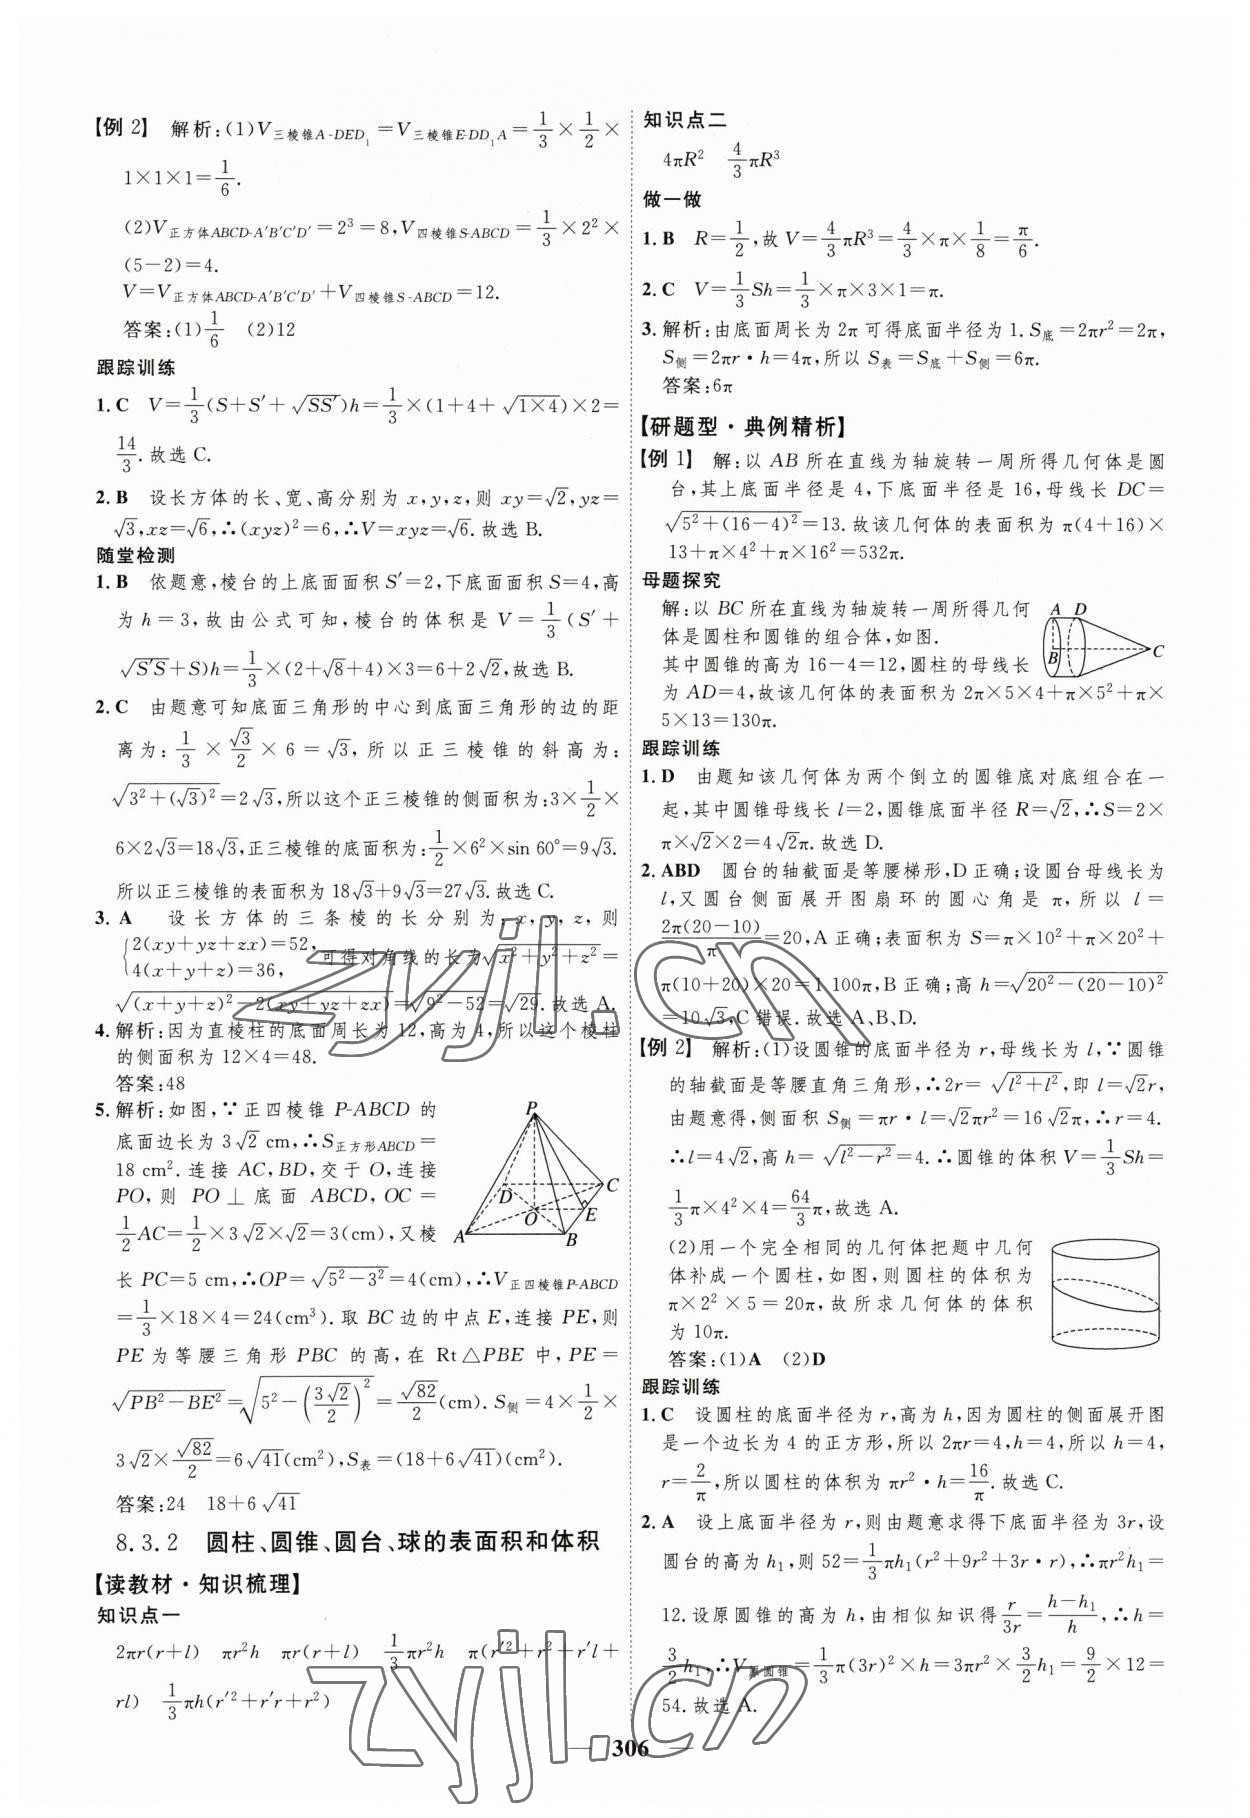 【例 2】 解析:(1)V三棱锥A-DED₁=V三棱锥E-DD₁A=1/3×1/2×
1×1×1=1/6.
(2)V正方体ABCD-A′B′C′D′=2³=8,V四棱锥S-ABCD=1/3×2²×
(5-2)=4.
V=V正方体ABCD-A′B′C′D′+V四棱锥S-ABCD=12.
答案:(1)1/6 (2)12
跟踪训练
1.C V=1/3(S+S′+√(SS′))h=1/3×(1+4+√(1×4))×2=
14/3.故选 C.
2.B 设长方体的长、宽、高分别为 x,y,z,则 xy=√2,yz=
√3,xz=√6,∴(xyz)²=6,∴V=xyz=√6.故选 B.
随堂检测
1.B 依题意,棱台的上底面面积 S′=2,下底面面积 S=4,高
为 h=3,故由公式可知,棱台的体积是 V=1/3(S′+
√(S′S)+S)h=1/3×(2+√8+4)×3=6+2√2,故选 B.
2.C 由题意可知底面三角形的中心到底面三角形的边的距
离为:1/3×√3/2×6=√3,所以正三棱锥的斜高为:
√(3²+(√3)²)=2√3,所以这个正三棱锥的侧面积为:3×1/2×
6×2√3=18√3,正三棱锥的底面积为:1/2×6²×sin 60°=9√3.
所以正三棱锥的表面积为 18√3+9√3=27√3.故选 C.
3.A 设长方体的三条棱的长分别为:x,y,z,则
{2(xy+yz+zx)=52,
4(x+y+z)=36, 可得对角线的长为√(x²+y²+z²)=
√((x+y+z)²-2(xy+yz+zx))=√(9²-52)=√29.故选 A.
4.解析:因为直棱柱的底面周长为 12,高为 4,所以这个棱柱
的侧面积为 12×4=48.
答案:48
5.解析:如图,∵正四棱锥 P-ABCD 的
底面边长为 3√2 cm,∴S正方形ABCD=
18 cm².连接 AC,BD,交于 O,连接
PO,则 PO⊥底面 ABCD,OC=
1/2AC=1/2×3√2×√2=3(cm),又棱
长 PC=5 cm,∴OP=√(5²-3²)=4(cm),∴V正四棱锥P-ABCD
=1/3×18×4=24(cm³).取 BC 边的中点 E,连接 PE,则
PE 为等腰三角形 PBC 的高,在 Rt△PBE 中,PE=
√(PB²-BE²)=√(5²-(3√2/2)²)=√82/2(cm).S侧=4×1/2×
3√2×√82/2=6√41(cm²),S表=(18+6√41)(cm²).
答案:24 18+6√41
P
D
C
O
E
A
B
8.3.2 圆柱、圆锥、圆台、球的表面积和体积
【读教材·知识梳理】
知识点一
2πr(r+l) πr²h πr(r+l) 1/3πr²h π(r′²+r²+r′l+
rl) 1/3πh(r′²+r′r+r²)
知识点二
4πR² 4/3πR³
做一做
1.B R=1/2,故 V=4/3πR³=4/3×π×1/8=π/6.
2.C V=1/3Sh=1/3×π×3×1=π.
3.解析:由底面周长为 2π 可得底面半径为 1.S底=2πr²=2π,
S侧=2πr·h=4π,所以 S表=S底+S侧=6π.
答案:6π
【研题型·典例精析】
【例 1】 解:以 AB 所在直线为轴旋转一周所得几何体是圆
台,其上底面半径是 4,下底面半径是 16,母线长 DC=
√(5²+(16-4)²)=13.故该几何体的表面积为 π(4+16)×
13+π×4²+π×16²=532π.
母题探究
解:以 BC 所在直线为轴旋转一周所得几何
体是圆柱和圆锥的组合体,如图.
其中圆锥的高为 16-4=12,圆柱的母线长
为 AD=4,故该几何体的表面积为 2π×5×4+π×5²+π×
5×13=130π.
A D
B
C
跟踪训练
1.D 由题知该几何体为两个倒立的圆锥底对底组合在一
起,其中圆锥母线长 l=2,圆锥底面半径 R=√2,∴S=2×
π×√2×2=4√2π.故选 D.
2.ABD 圆台的轴截面是等腰梯形,D 正确;设圆台母线长为
l,又圆台侧面展开图扇环的圆心角是 π,所以 l=
2π(20-10)/π=20,A 正确;表面积为 S=π×10²+π×20²+
π(10+20)×20=1 100π,B 正确;高 h=√(20²-(20-10)²)
=10√3,C 错误.故选 A、B、D.
【例 2】 解析:(1)设圆锥的底面半径为 r,母线长为 l,∵圆锥
的轴截面是等腰直角三角形,∴2r=√(l²+l²),即 l=√2r,
由题意得,侧面积 S侧=πr·l=√2πr²=16√2π,∴r=4.
∴l=4√2,高 h=√(l²-r²)=4.∴圆锥的体积 V=1/3Sh=
1/3π×4²×4=64/3π,故选 A.
(2)用一个完全相同的几何体把题中几何
体补成一个圆柱,如图,则圆柱的体积为
π×2²×5=20π,故所求几何体的体积
为 10π.
答案:(1)A (2)D
跟踪训练
1.C 设圆柱的底面半径为 r,高为 h,因为圆柱的侧面展开图
是一个边长为 4 的正方形,所以 2πr=4,h=4,所以 h=4,
r=2/π,所以圆柱的体积为 πr²·h=16/π.故选 C.
2.A 设上底面半径为 r,则由题意求得下底面半径为 3r,设
圆台的高为 h₁,则 52=1/3πh₁(r²+9r²+3r·r),∴πr²h₁=
12.设原圆锥的高为 h,由相似知识得 r/3r=(h-h₁)/h,∴h=
3/2h₁,∴V原圆锥=1/3π(3r)²×h=3πr²×3/2h₁=9/2×12=
54.故选 A.
306
zyjl.cn
zyjl.cn